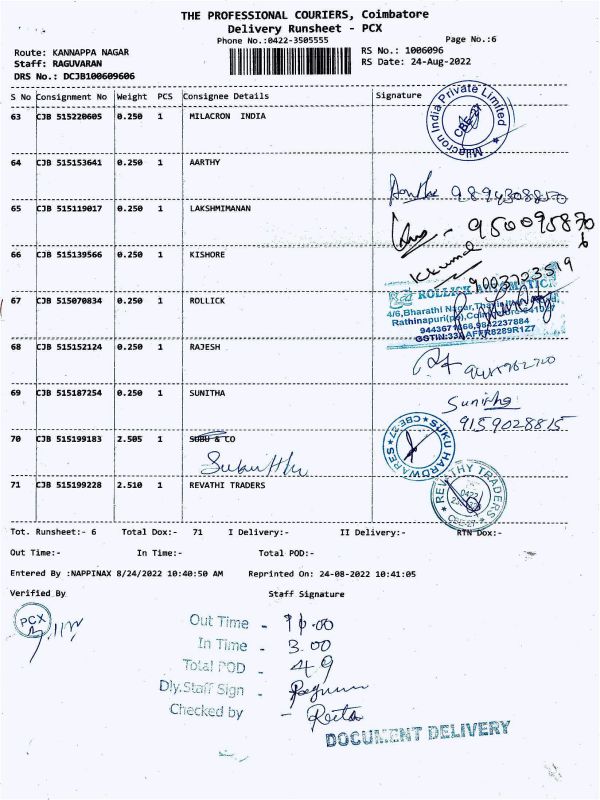 THE PROFESSIONAL COURIERS, Coimbatore
Delivery Runsheet - PCX
Phone No.:0422-3505555
Page No.:6
Route: KANNAPPA NAGAR
RS No.: 1006096
Staff: RAGUVARAN
RS Date: 24-Aug-2022
DRS No.: DCJB100609606
S No Consignment No Weight PCS Consignee Details Signature
63 CJB 515220605 0.250 1 MILACRON INDIA
Milacron India Private Limited
CBE-27
64 CJB 515153641 0.250 1 AARTHY
65 CJB 515119017 0.250 1 LAKSHMIMANAN
9500958706
66 CJB 515139566 0.250 1 KISHORE
9003723519
67 CJB 515070834 0.250 1 ROLLICK
ROLLICK
4/6,Bharathi Nagar,
Rathinapuri(po),
GSTIN:
68 CJB 515152124 0.250 1 RAJESH
69 CJB 515187254 0.250 1 SUNITHA
Sunitha
9159028815
70 CJB 515199183 2.505 1 SUBU & CO
SUKU HARDWARES
CBE-27
71 CJB 515199228 2.510 1 REVATHI TRADERS
REVATHY TRADERS
CBE-27
Tot. Runsheet:- 6 Total Dox:- 71 I Delivery:- II Delivery:- RTN Dox:-
Out Time:- In Time:- Total POD:-
Entered By :NAPPINAX 8/24/2022 10:40:50 AM Reprinted On: 24-08-2022 10:41:05
Verified By Staff Signature
PCX
Out Time -
In Time - 3.00
Total POD - 49
Dly.Staff Sign -
Checked by -
DOCUMENT DELIVERY